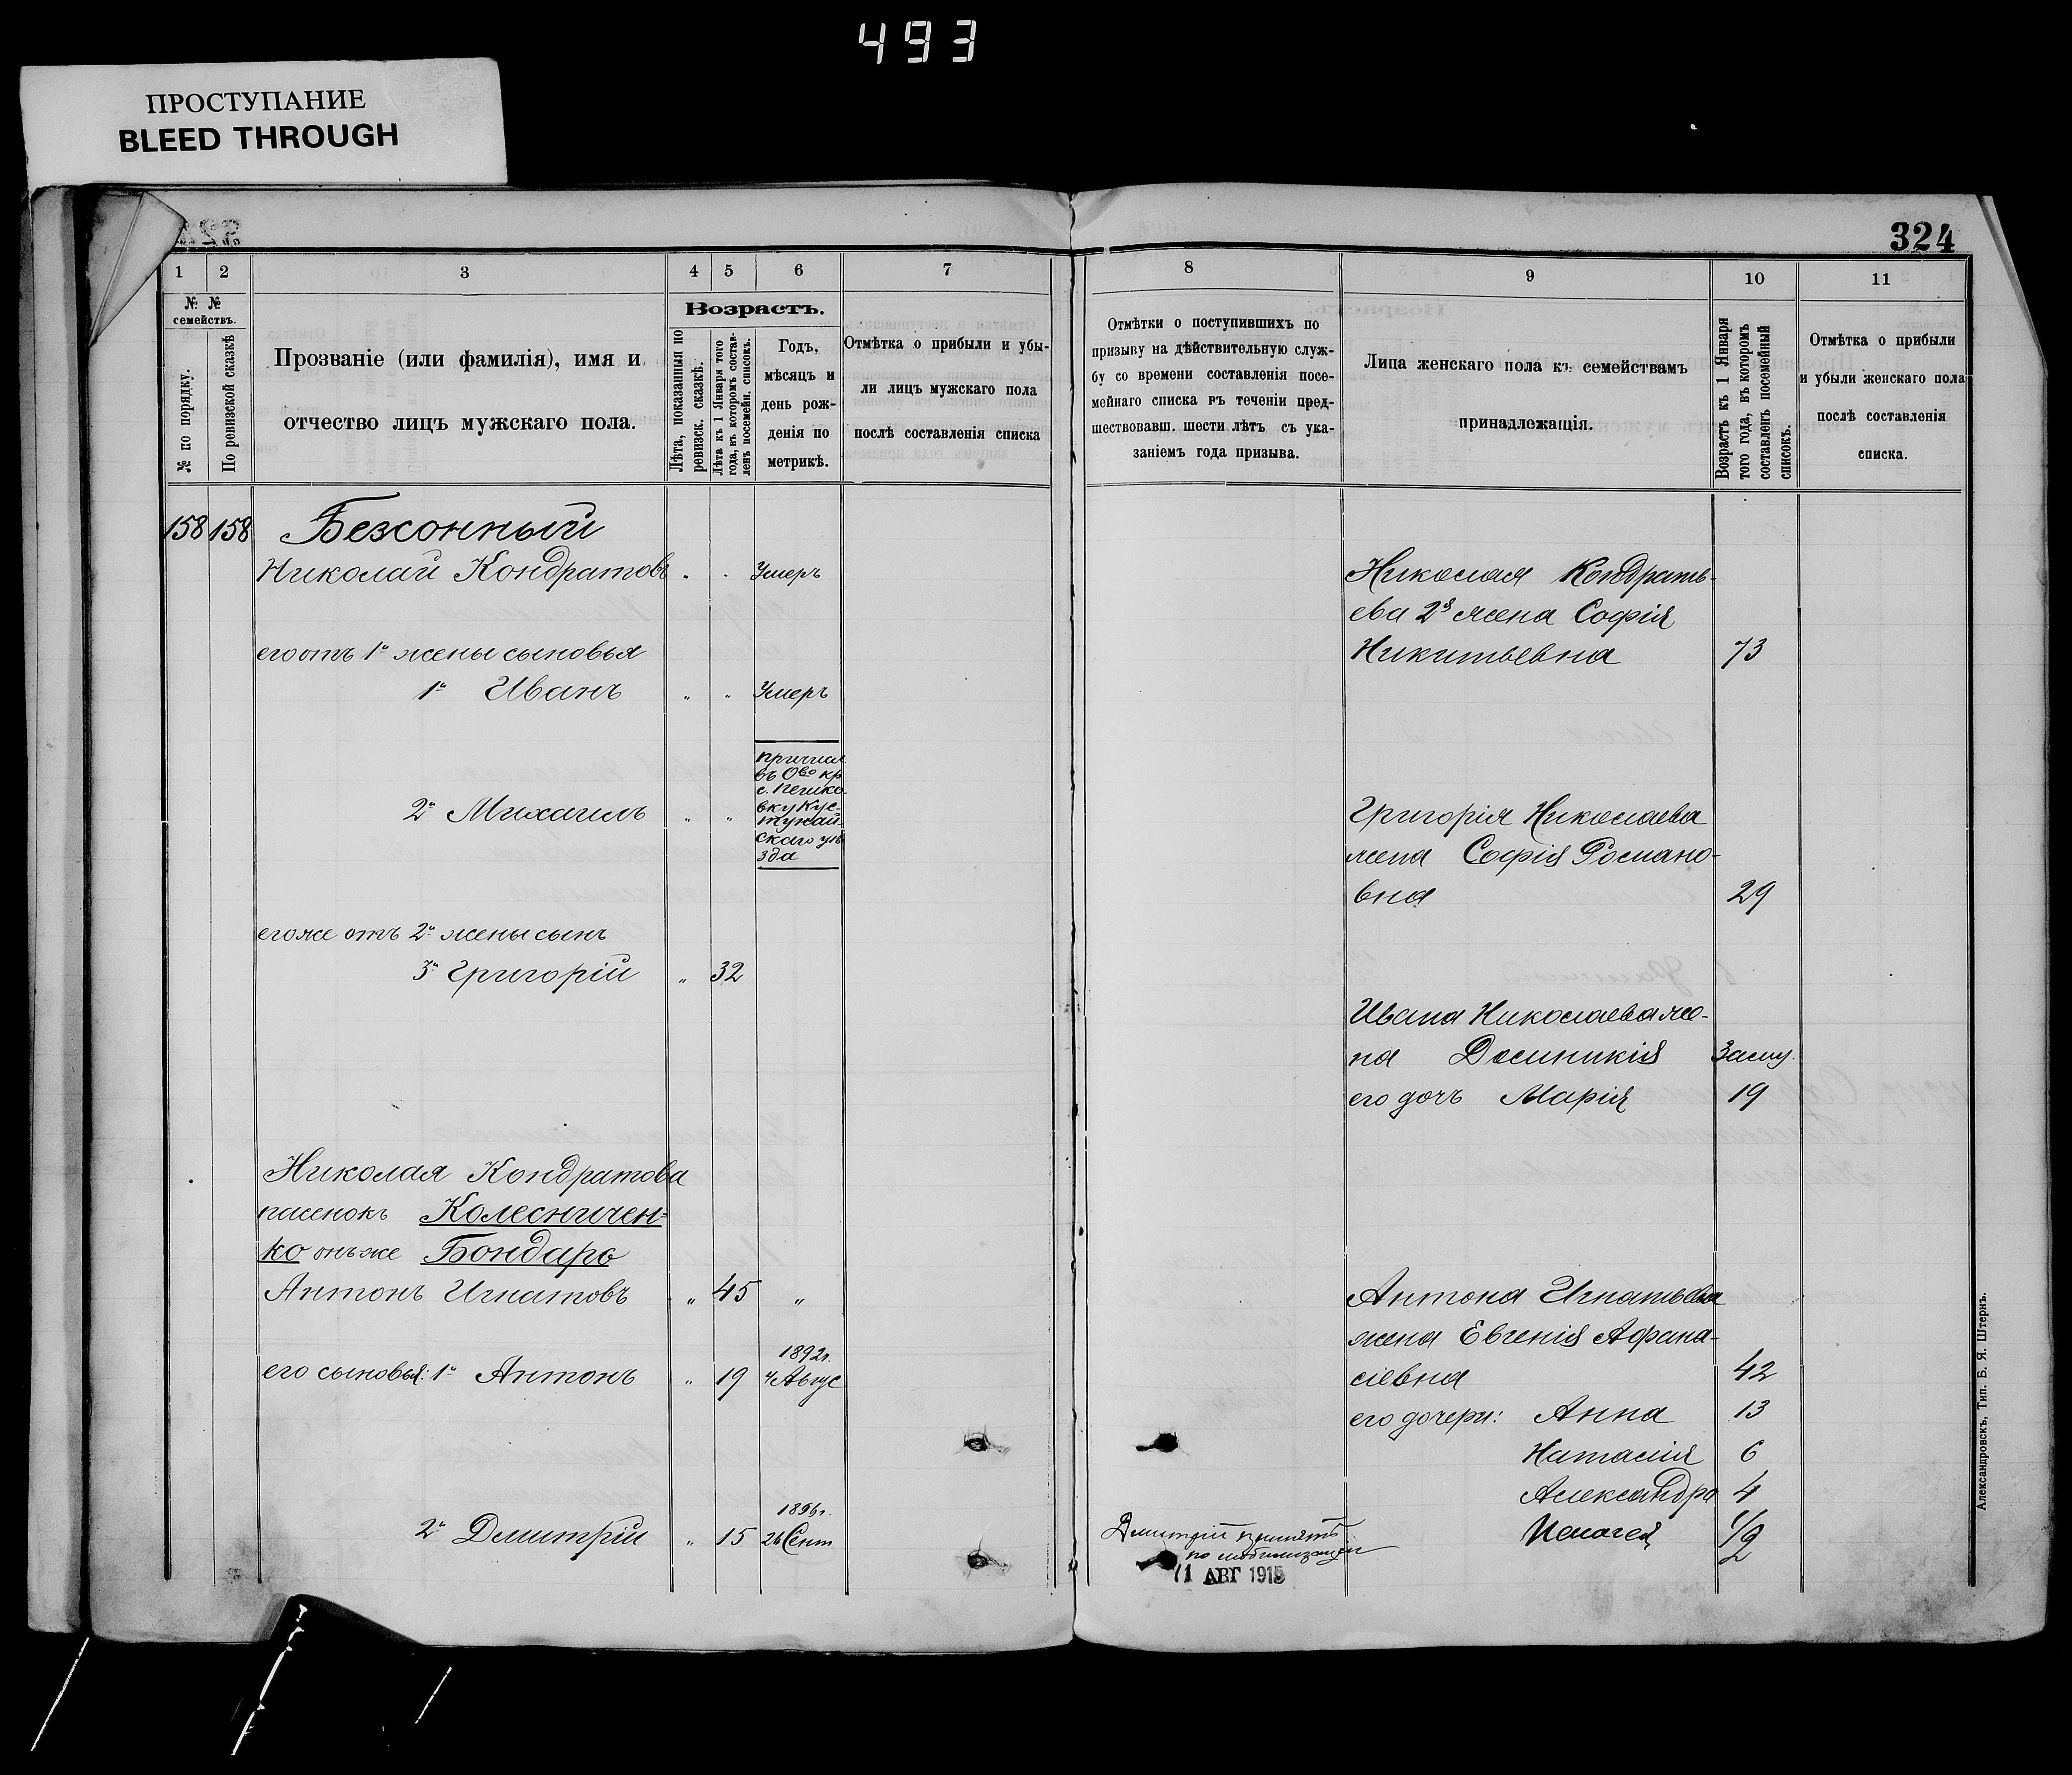 493
ПРОСТУПАНИЕ
BLEED THROUGH
324
1 2 3 4 5 6 7
№ №
семействъ.
№ по порядку.
По ревизской сказкѣ
Прозваніе (или фамилія), имя и
отчество лицъ мужскаго пола.
Возрастъ.
Лѣта, показанныя по
ревизск. сказкѣ.
Лѣта къ 1 Января того
года, въ которомъ состав-
ленъ посемейн. списокъ.
Годъ,
мѣсяцъ и
день рож-
денія по
метрикѣ.
Отмѣтка о прибыли и убы-
ли лицъ мужскаго пола
послѣ составленія списка
158 158 Безсонный
Николай Кондратовъ " " Умеръ
его отъ 1й жены сыновья
1й Иванъ " " Умеръ
въ
с.
вку Кус-
танай-
скаго уѣ
зда
2й Михаилъ " "
его же отъ 2й жены сынъ
3й Григорій " 32
Николая Кондратова
пасенокъ Колесничен=
ко онъ же Бондарь
Антонъ Игнатовъ " 45 "
1892г.
его сыновья: 1й Антонъ " 19 4 Авгус
1896г.
2й Дмитрій " 15 26 Сент
8 9 10 11
Отмѣтки о поступившихъ по
призыву на дѣйствительную служ-
бу со времени составленія посе-
мейнаго списка въ теченіи пред-
шествовавш. шести лѣтъ съ ука-
заніемъ года призыва.
Лица женскаго пола къ семействамъ
принадлежащія.
Возрастъ къ 1 Января
того года, въ которомъ
составленъ посемейный
списокъ.
Отмѣтка о прибыли
и убыли женскаго пола
послѣ составленія
списка.
Николая Кондрать-
ева 2я жена Софія
Никитьевна 73
Григорія Николаева
жена Софія Романо-
вна 29
Ивана Николаева же-
на Домникія Заму.
его дочь Марія 19
Антона Игнатьева
жена Евгенія Афана-
сіевна 42
его дочери: Анна 13
Наталия 6
Александра 4
Пелагея 1/2
Дмитрій принятъ
по мобилизаціи
11 АВГ 1915
Александровскъ, Тип. Б. Я. Штернъ.